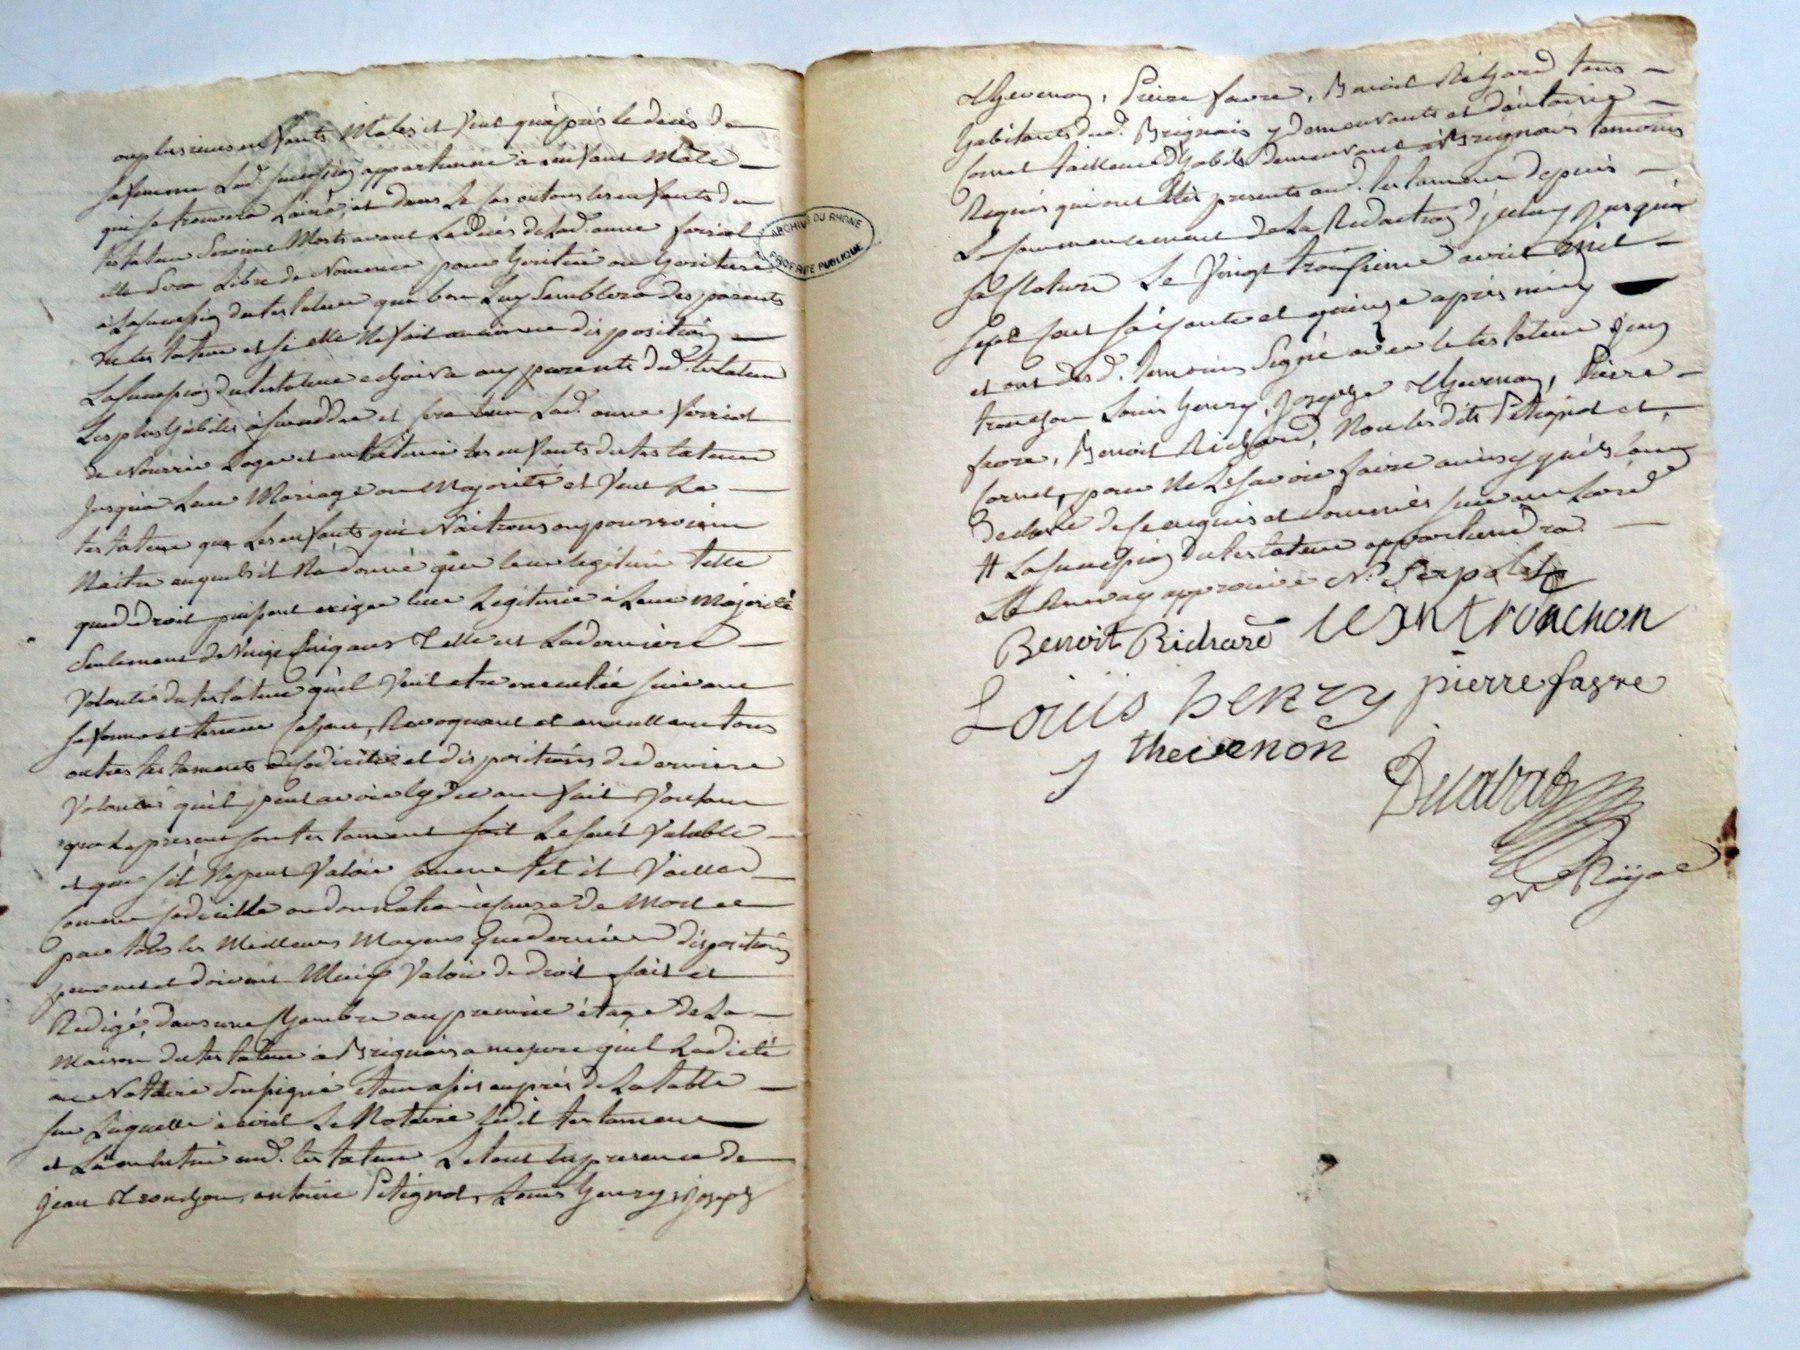 ou plusieurs enfants Males et veut qu'après le decès de
sa femme Lad. succession appartienne à L'enfant Mâle
qui se trouvera L'ainé, et dans Le Cas ou tous les enfants du
testateur seroient Morts avant Le decès de Lad. anne ferriol
elle sera Libre de Nommer pour heritier ou heritiere
à La succession du testateur que bon Luy semblera des parents
du testateur et si elle Ne fait aucune disposition
La succession du testateur echoira aux parents dud. testateur
Les plus habiles à succeder et sera tenue Lad. anne ferriol
de Nourrir Loger et entretenir les enfants du testateur
jusqu'a Leur Mariage ou Majorité et Veut Le
testateur que Les enfants qui Naitront ou pourroient
Naitre auquels il N'a donné que leur legitime telle
que de droit puissent exiger leur Legitime à Leur Majorité
seulement de Vingt Cinq ans Telle est La derniere
Volonté du testateur qu'il Veut etre executée suivant
sa forme et teneur Cassant, Revoquant et annullant tous
autres testaments codiciles et dispositions de derniere
Volonté qu'il peut avoir cy devant fait Voulant
que Le present son testament soit Le seul Valable
et que s'il Ne peut Valoir Comme tel il Vaille
Comme Codicille ou donation à Cause de Mort et
par tous les Meilleurs Moyens que derniere disposition
peuvent et doivent Mieux Valoir de droit fait et
Redigé, dans une Chambre au premier étage de La
Maison du testateur à Brignais a mesure qu'il L'a dicté
au Notaire soussigné etant assis auprès de La table
sur Laquelle a ecrit Le Notaire Ledit testament
et L'a en entier aud. testateur Le tout en presence de
jean tronchon, antoine Petignot, Louis henry, joseph
ARCHIVES DU RHONE
PROPRIÉTÉ PUBLIQUE
thevenon, Pierre favre, Benoit Richard tous
habitants dud. Brignais y demeurants et d'antoine
Cornet tailleur d'habits demeurant à Brignais temoins
Requis qui ont été presents aud. testament depuis
Le Commencement de La Redaction d'iceluy jusqu'à
sa Cloture Le Vingt troisieme avril mil
sept Cent soixante et quinze après midy
et ont lesd. temoins signé avec le testateur jean
tronchon Louis henry, joseph thevenon, Pierre
favre, Benoit Richard, Non lesdits Petignot et
Cornet, pour Ne Le savoir faire ainsy qu'ils l'ont
Declaré de ce enquis et sommés suivant L'ord.
# La succession du testateur appartiendra.
Le Renvoy approuvé N. Serpolet
Benoit Richard jean tronchon
Louis henry pierre favre
j thevenon
Ducabat
N. Royal